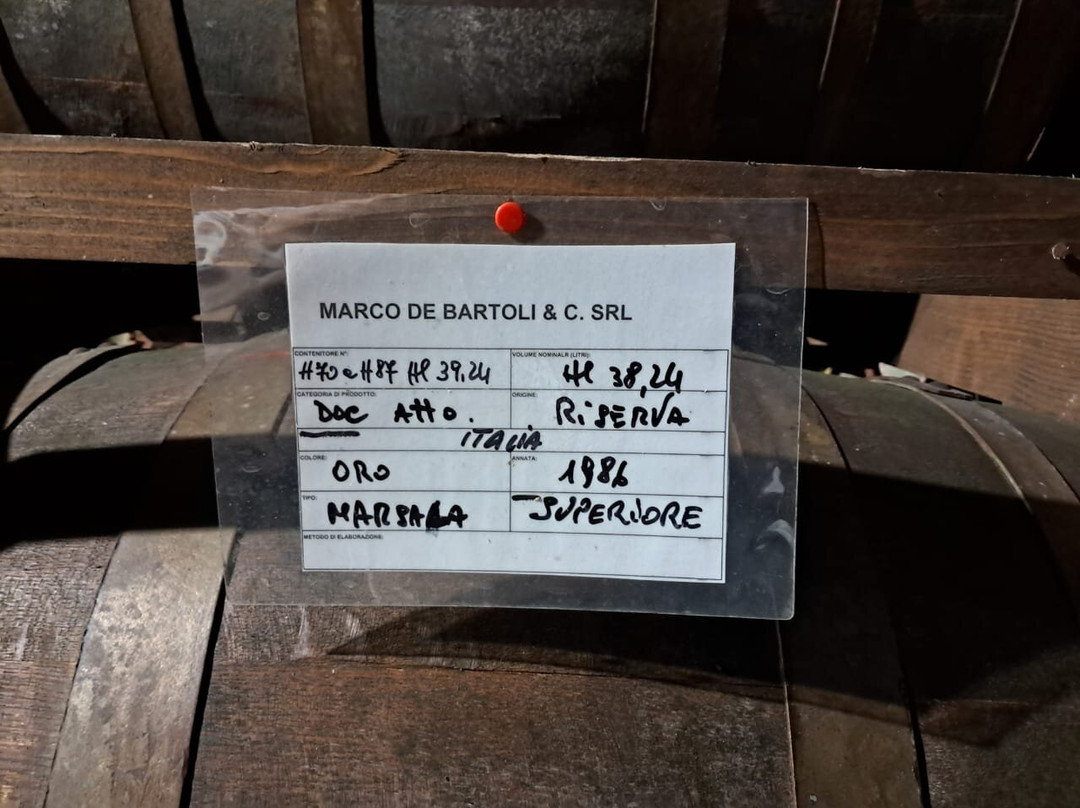 MARCO DE BARTOLI & C. SRL
CONTENITORE N°: VOLUME NOMINALR (LITRI):
H70 a H87 Hl 39,24 Hl 38,24
CATEGORIA DI PRODOTTO: ORIGINE:
DOC Atto. RiSERVA
ITALIA
COLORE: ANNATA:
ORO 1986
TIPO:
MARSALA SUPERIORE
METODO DI ELABORAZIONE: